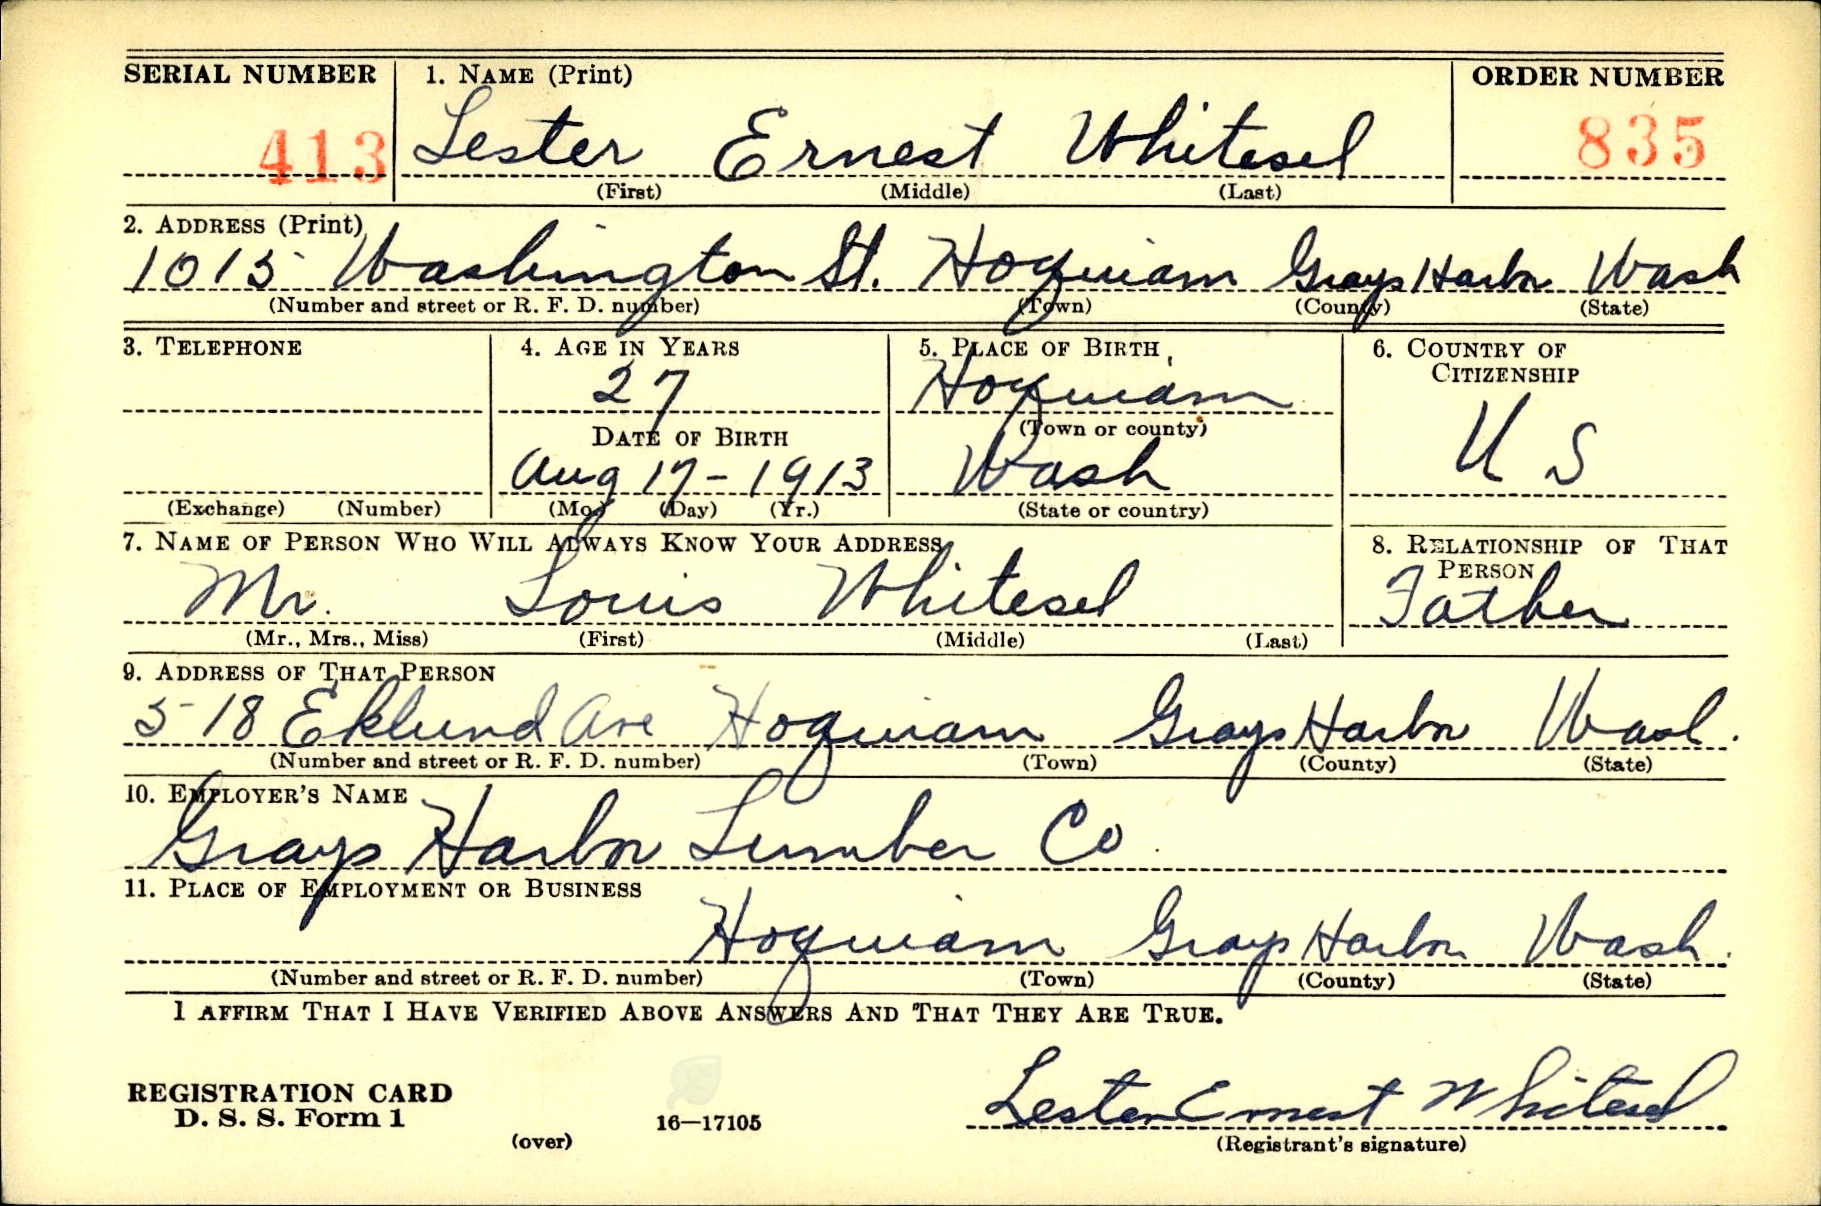 SERIAL NUMBER 1. NAME (Print) ORDER NUMBER
413 Lester Ernest Whitesel 835
(First) (Middle) (Last)
2. ADDRESS (Print)
1015 Washington St. Hoquiam Grays Harbor Wash
(Number and street or R. F. D. number) (Town) (County) (State)
3. TELEPHONE 4. AGE IN YEARS 5. PLACE OF BIRTH 6. COUNTRY OF CITIZENSHIP
27 Hoquiam
DATE OF BIRTH (Town or county)
Aug 17-1913 Wash U S
(Exchange) (Number) (Mo.) (Day) (Yr.) (State or country)
7. NAME OF PERSON WHO WILL ALWAYS KNOW YOUR ADDRESS 8. RELATIONSHIP OF THAT PERSON
Mr. Louis Whitesel Father
(Mr., Mrs., Miss) (First) (Middle) (Last)
9. ADDRESS OF THAT PERSON
518 Eklund Ave Hoquiam Grays Harbor Wash.
(Number and street or R. F. D. number) (Town) (County) (State)
10. EMPLOYER'S NAME
Grays Harbor Lumber Co.
11. PLACE OF EMPLOYMENT OR BUSINESS
Hoquiam Grays Harbor Wash.
(Number and street or R. F. D. number) (Town) (County) (State)
I AFFIRM THAT I HAVE VERIFIED ABOVE ANSWERS AND THAT THEY ARE TRUE.
REGISTRATION CARD
D. S. S. Form 1 16—17105 Lester Ernest Whitesel
(over) (Registrant's signature)